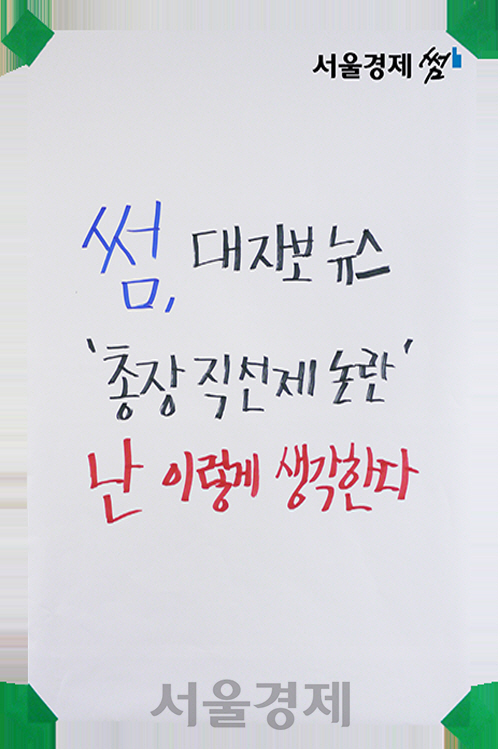 서울경제 썸
썸, 대자보 뉴스
'총장 직선제 논란'
난 이렇게 생각한다
서울경제